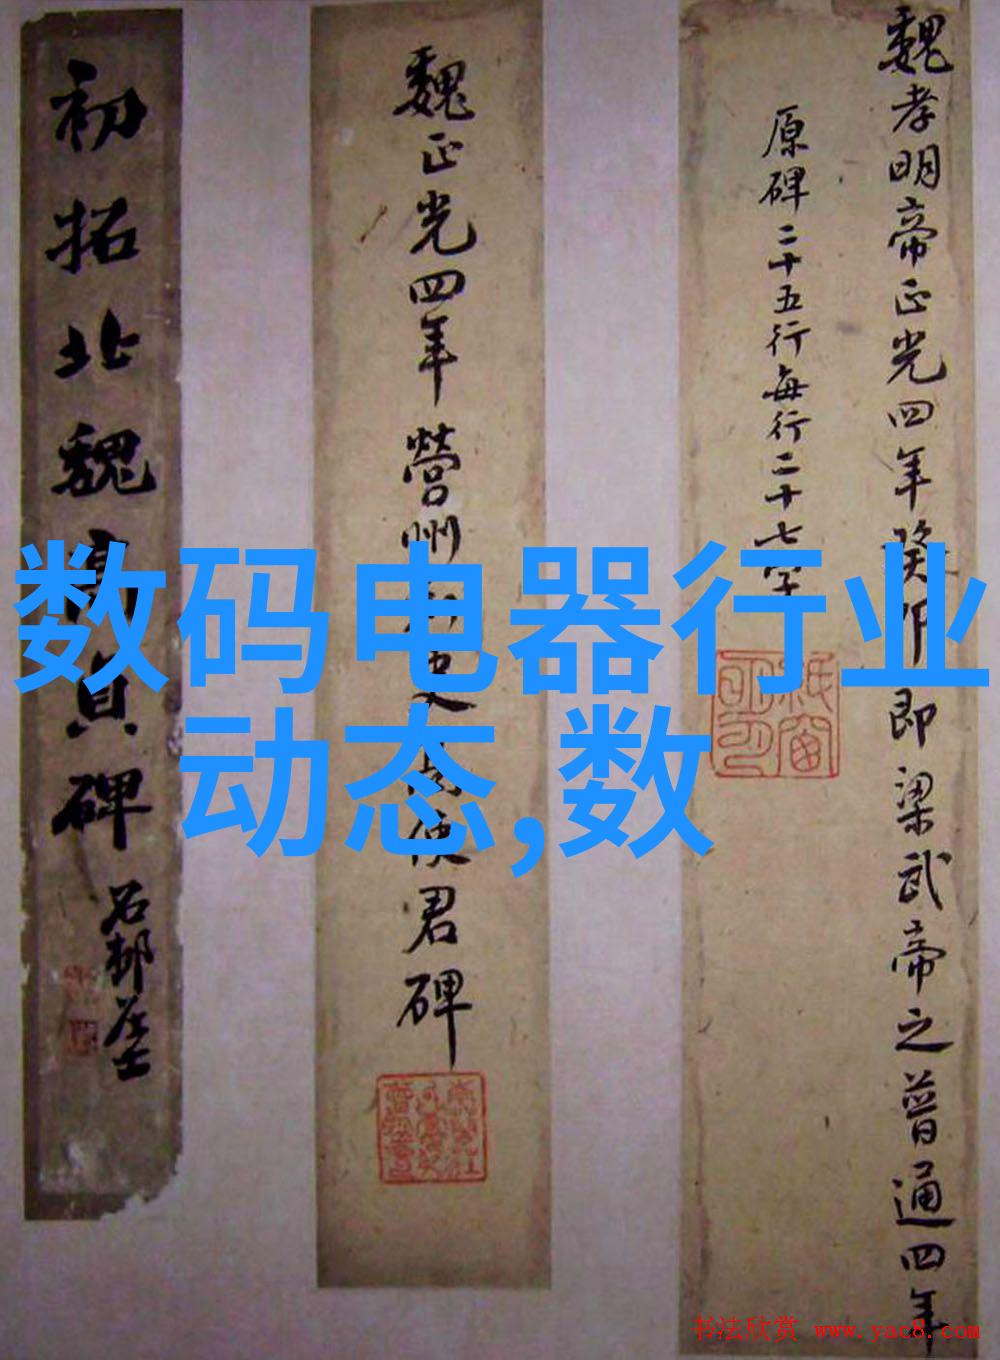 魏孝明帝正光四年癸卯即梁武帝之普通四年
原碑二十五行每行二十七字
魏正光四年營州刺史高使君碑
初拓北魏高貞碑
石邨居士
数码电器行业
动态,数
书法欣赏 www.yac8.com